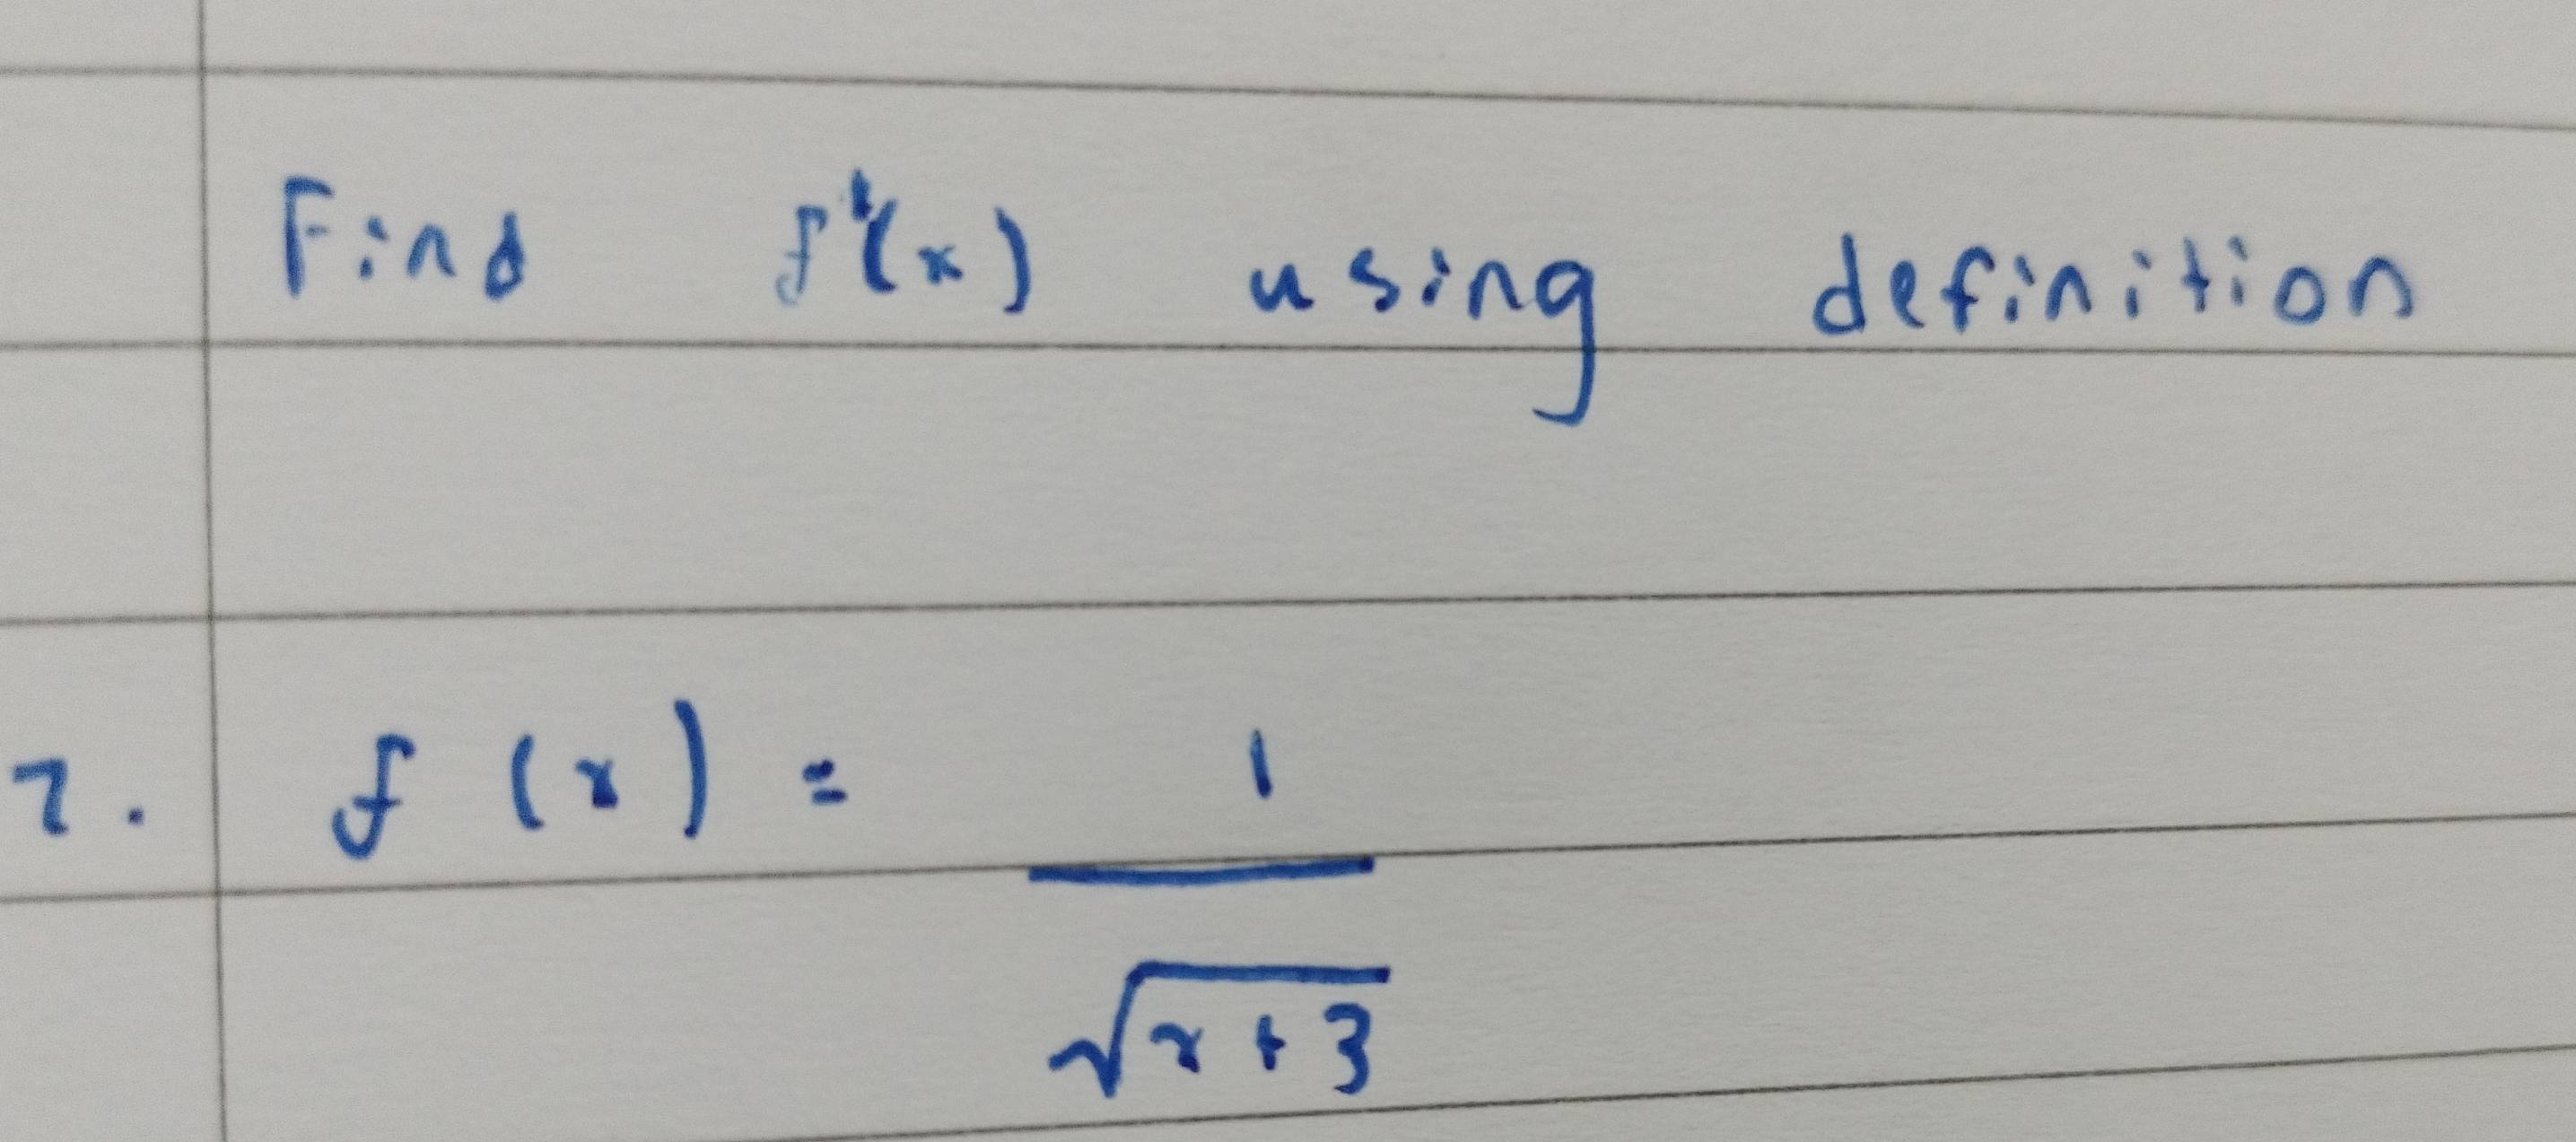 Find f'(x) using definition
7. f(x) = 1/√(x+3)